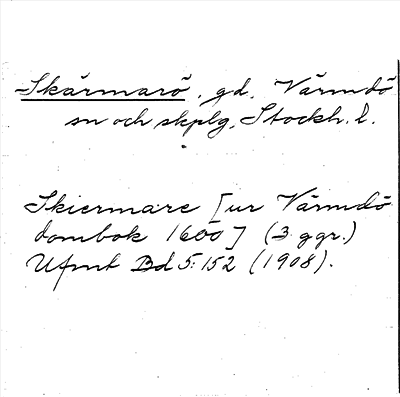 Skärmarö, gd, Värmdö
sn och skplg, Stockh. l.
Skiermare [ur Värmdö
dombok 1600] (3 ggr.)
Ufmt Bd 5:152 (1908).